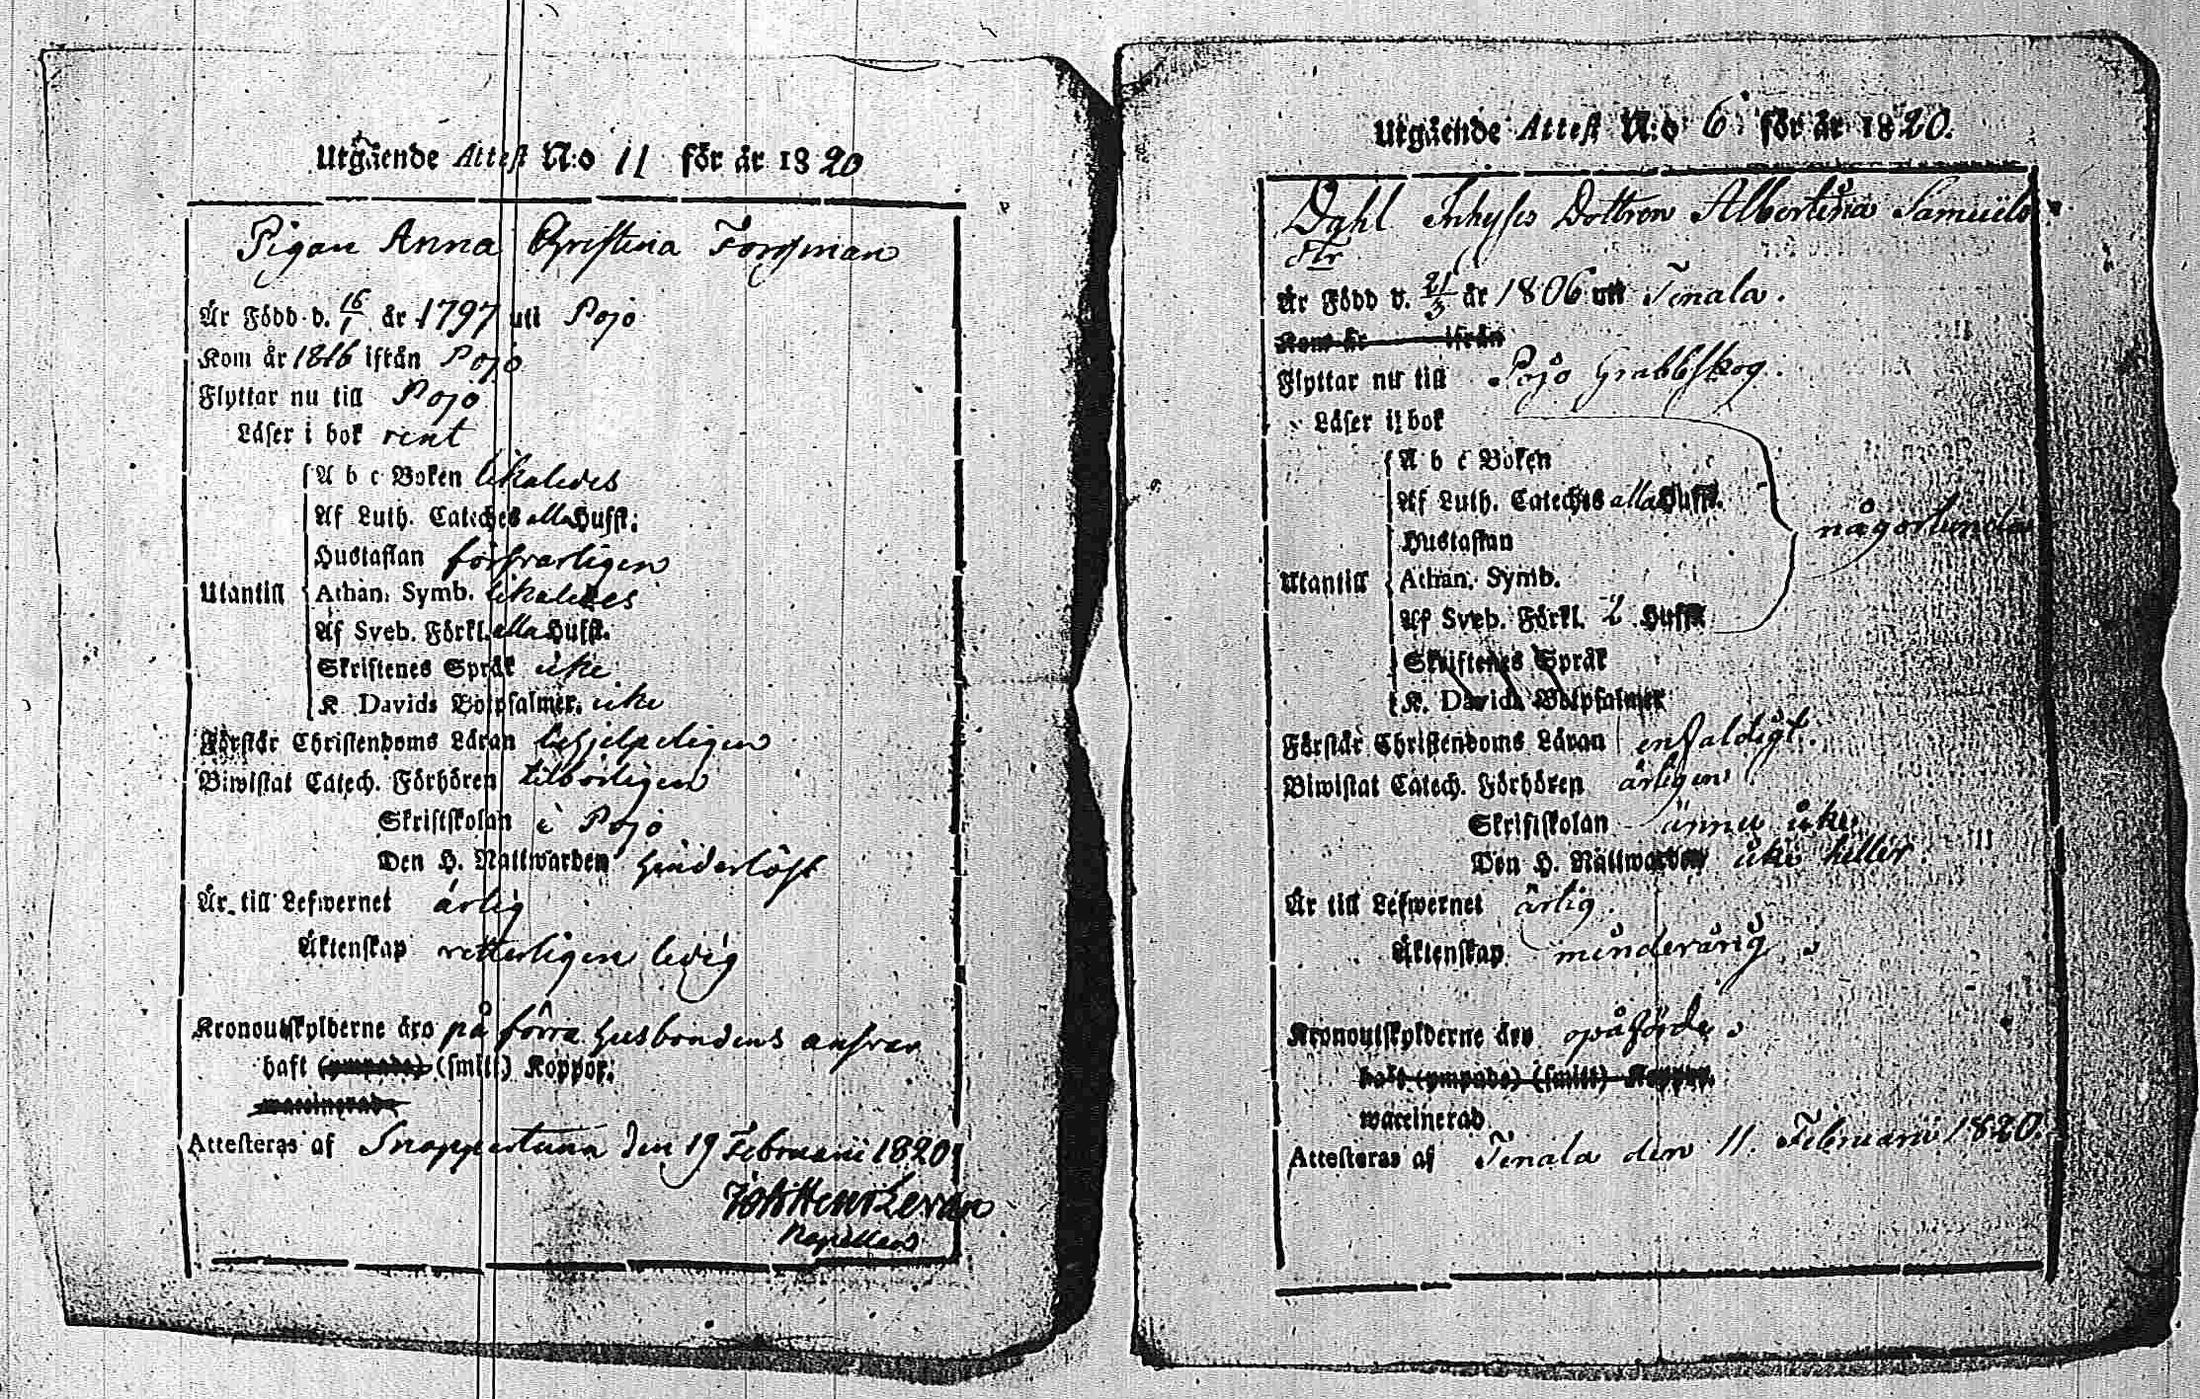 Utgående Attest N:o 11 för år 1820
Pigan Anna Christina Forsman
Är Född d. 16/1 år 1797 uti Pojo
Kom år 1816 ifrån Pojo
Flyttar nu till Pojo
Läser i bok rent
Utantill
A b c Boken likaledes
Af Luth. Cateches alla Hufst.
Hustaflan försvarligen
Athan. Symb. likaledes
Af Sveb. Förkl. alla Hufst.
Skriftenes Språk icke
K. Davids Botpsalmer. icke
Förstår Christendoms Läran behjelpeligen
Biwistat Catech. Förhören tilbörligen
Skriftskolan i Pojo
Den H. Nattwarden hinderlöst
Är till Lefwernet ärlig
Äktenskap retterligen ledig
Kronoutskylderne äro på förra husbondens ansvar
haft (ympade) (smitt) Koppor.
waccinerad
Attesteras af Snappertuna den 19 Februarii 1820
Joh Henr Levan
Kapellans
Utgående Attest N:o 6 för år 1820.
Dahl Inhyses Dottren Albertina Samuels
dtr
Är Född d. 21/3 år 1806 uti Tenala.
Kom år ifrån
Flyttar nu till Pojo Grabbskog.
Läser i bok
Utantill
A b c Boken
Af Luth. Cateches alla Hufst.
Hustaflan någorlunda
Athan. Symb.
Af Sveb. Förkl. 2 Hufst.
Skriftenes Språk
K. Davids Botpsalmer
Förstår Christendoms Läran enfaldigt.
Biwistat Catech. Förhören årligen
Skriftskolan ännu icke
Den H. Nattwarden icke heller.
Är till Lefwernet ärlig.
Äktenskap minderårig
Kronoutskylderne äro opåförde
haft (ympade) (smitt) Koppor.
waccinerad
Attesteras af Tenala den 11. Februarii 1820.